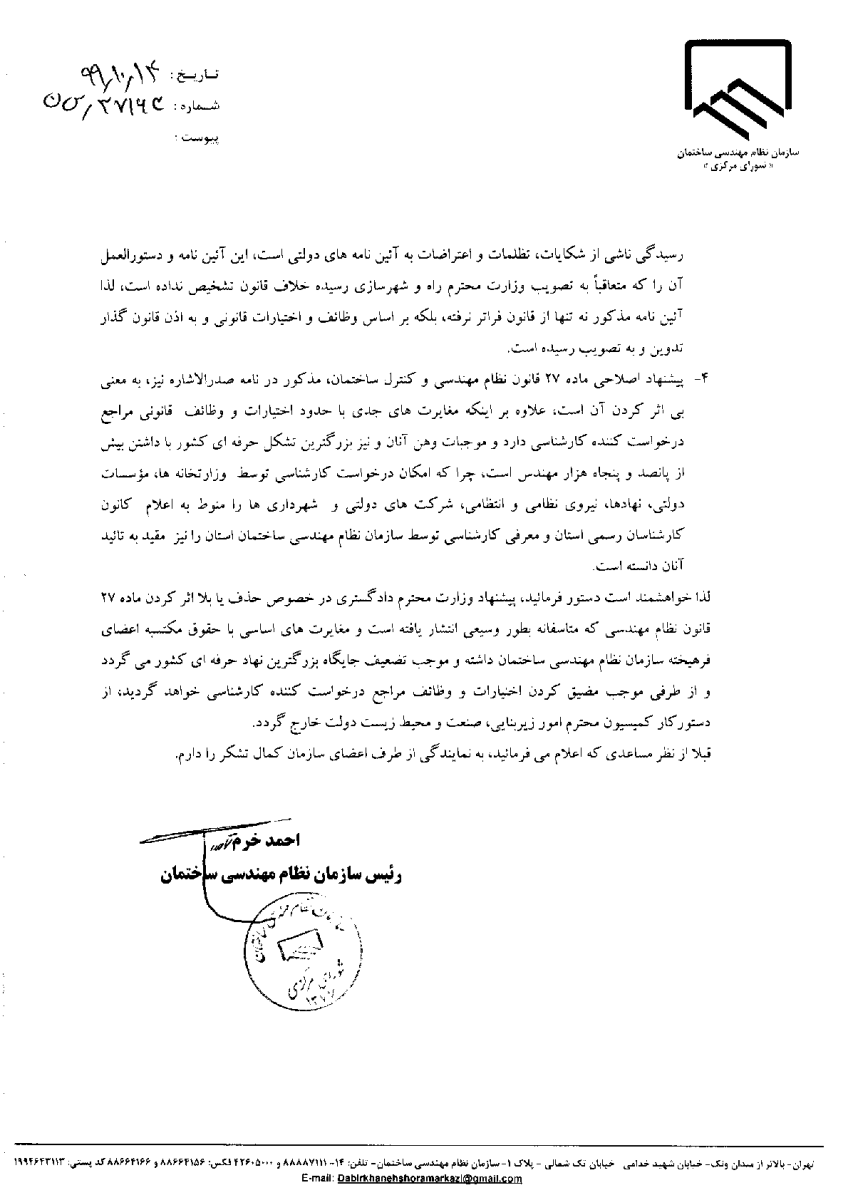 تاریخ: ۹۹,۱۰,۱۳
شماره:
پیوست:
سازمان نظام مهندسی ساختمان
« شورای مرکزی »
رسیدگی ناشی از شکایات، تظلمات و اعتراضات به آئین نامه های دولتی است، این آئین نامه و دستورالعمل
آن را که متعاقباً به تصویب وزارت محترم راه و شهرسازی رسیده خلاف قانون تشخیص نداده است، لذا
آئین نامه مذکور نه تنها از قانون فراتر نرفته، بلکه بر اساس وظائف و اختیارات قانونی و به اذن قانون گذار
تدوین و به تصویب رسیده است.
۴- پیشنهاد اصلاحی ماده ۲۷ قانون نظام مهندسی و کنترل ساختمان، مذکور در نامه صدرالاشاره نیز، به معنی
بی اثر کردن آن است، علاوه بر اینکه مغایرت های جدی با حدود اختیارات و وظائف قانونی مراجع
درخواست کننده کارشناسی دارد و موجبات وهن آنان و نیز بزرگترین تشکل حرفه ای کشور با داشتن بیش
از پانصد و پنجاه هزار مهندس است، چرا که امکان درخواست کارشناسی توسط وزارتخانه ها، مؤسسات
دولتی، نهادها، نیروی نظامی و انتظامی، شرکت های دولتی و شهرداری ها را منوط به اعلام کانون
کارشناسان رسمی استان و معرفی کارشناسی توسط سازمان نظام مهندسی ساختمان استان را نیز مقید به تائید
آنان دانسته است.
لذا خواهشمند است دستور فرمائید، پیشنهاد وزارت محترم دادگستری در خصوص حذف یا بلا اثر کردن ماده ۲۷
قانون نظام مهندسی که متاسفانه بطور وسیعی انتشار یافته است و مغایرت های اساسی با حقوق مکتسبه اعضای
فرهیخته سازمان نظام مهندسی ساختمان داشته و موجب تضعیف جایگاه بزرگترین نهاد حرفه ای کشور می گردد
و از طرفی موجب مضیق کردن اختیارات و وظائف مراجع درخواست کننده کارشناسی خواهد گردید، از
دستورکار کمیسیون محترم امور زیربنایی، صنعت و محیط زیست دولت خارج گردد.
قبلا از نظر مساعدی که اعلام می فرمائید، به نمایندگی از طرف اعضای سازمان کمال تشکر را دارم.
احمد خرم
رئیس سازمان نظام مهندسی ساختمان
شورای مرکزی
۱۳۷۷
تهران- بالاتر از میدان ونک- خیابان شهید خدامی خیابان تک شمالی - پلاک ۱- سازمان نظام مهندسی ساختمان- تلفن: ۱۴- ۸۸۸۸۷۱۱۱ و ۴۲۶۰۵۰۰۰ فکس: ۸۸۶۶۴۱۵۶ و ۸۸۶۶۴۱۶۶ کد پستی: ۱۹۹۴۶۴۳۱۱۳
E-mail: Dabirkhanehshoramarkazi@gmail.com